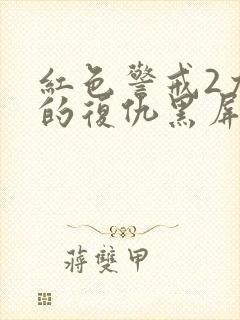 紅色警戒2
的復仇黑屏
蔣雙甲